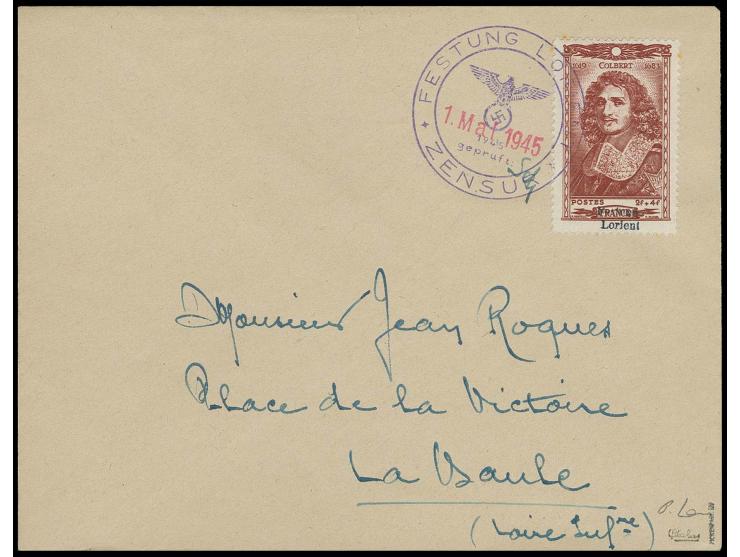 FESTUNG LO
1. Mai 1945
1945
geprüft:
ZENSU
1619 COLBERT 1683
POSTES 2f+4f
FRANCE
Lorient
Monsieur Jean Roques
Place de la Victoire
La Baule
(Loire Infre)